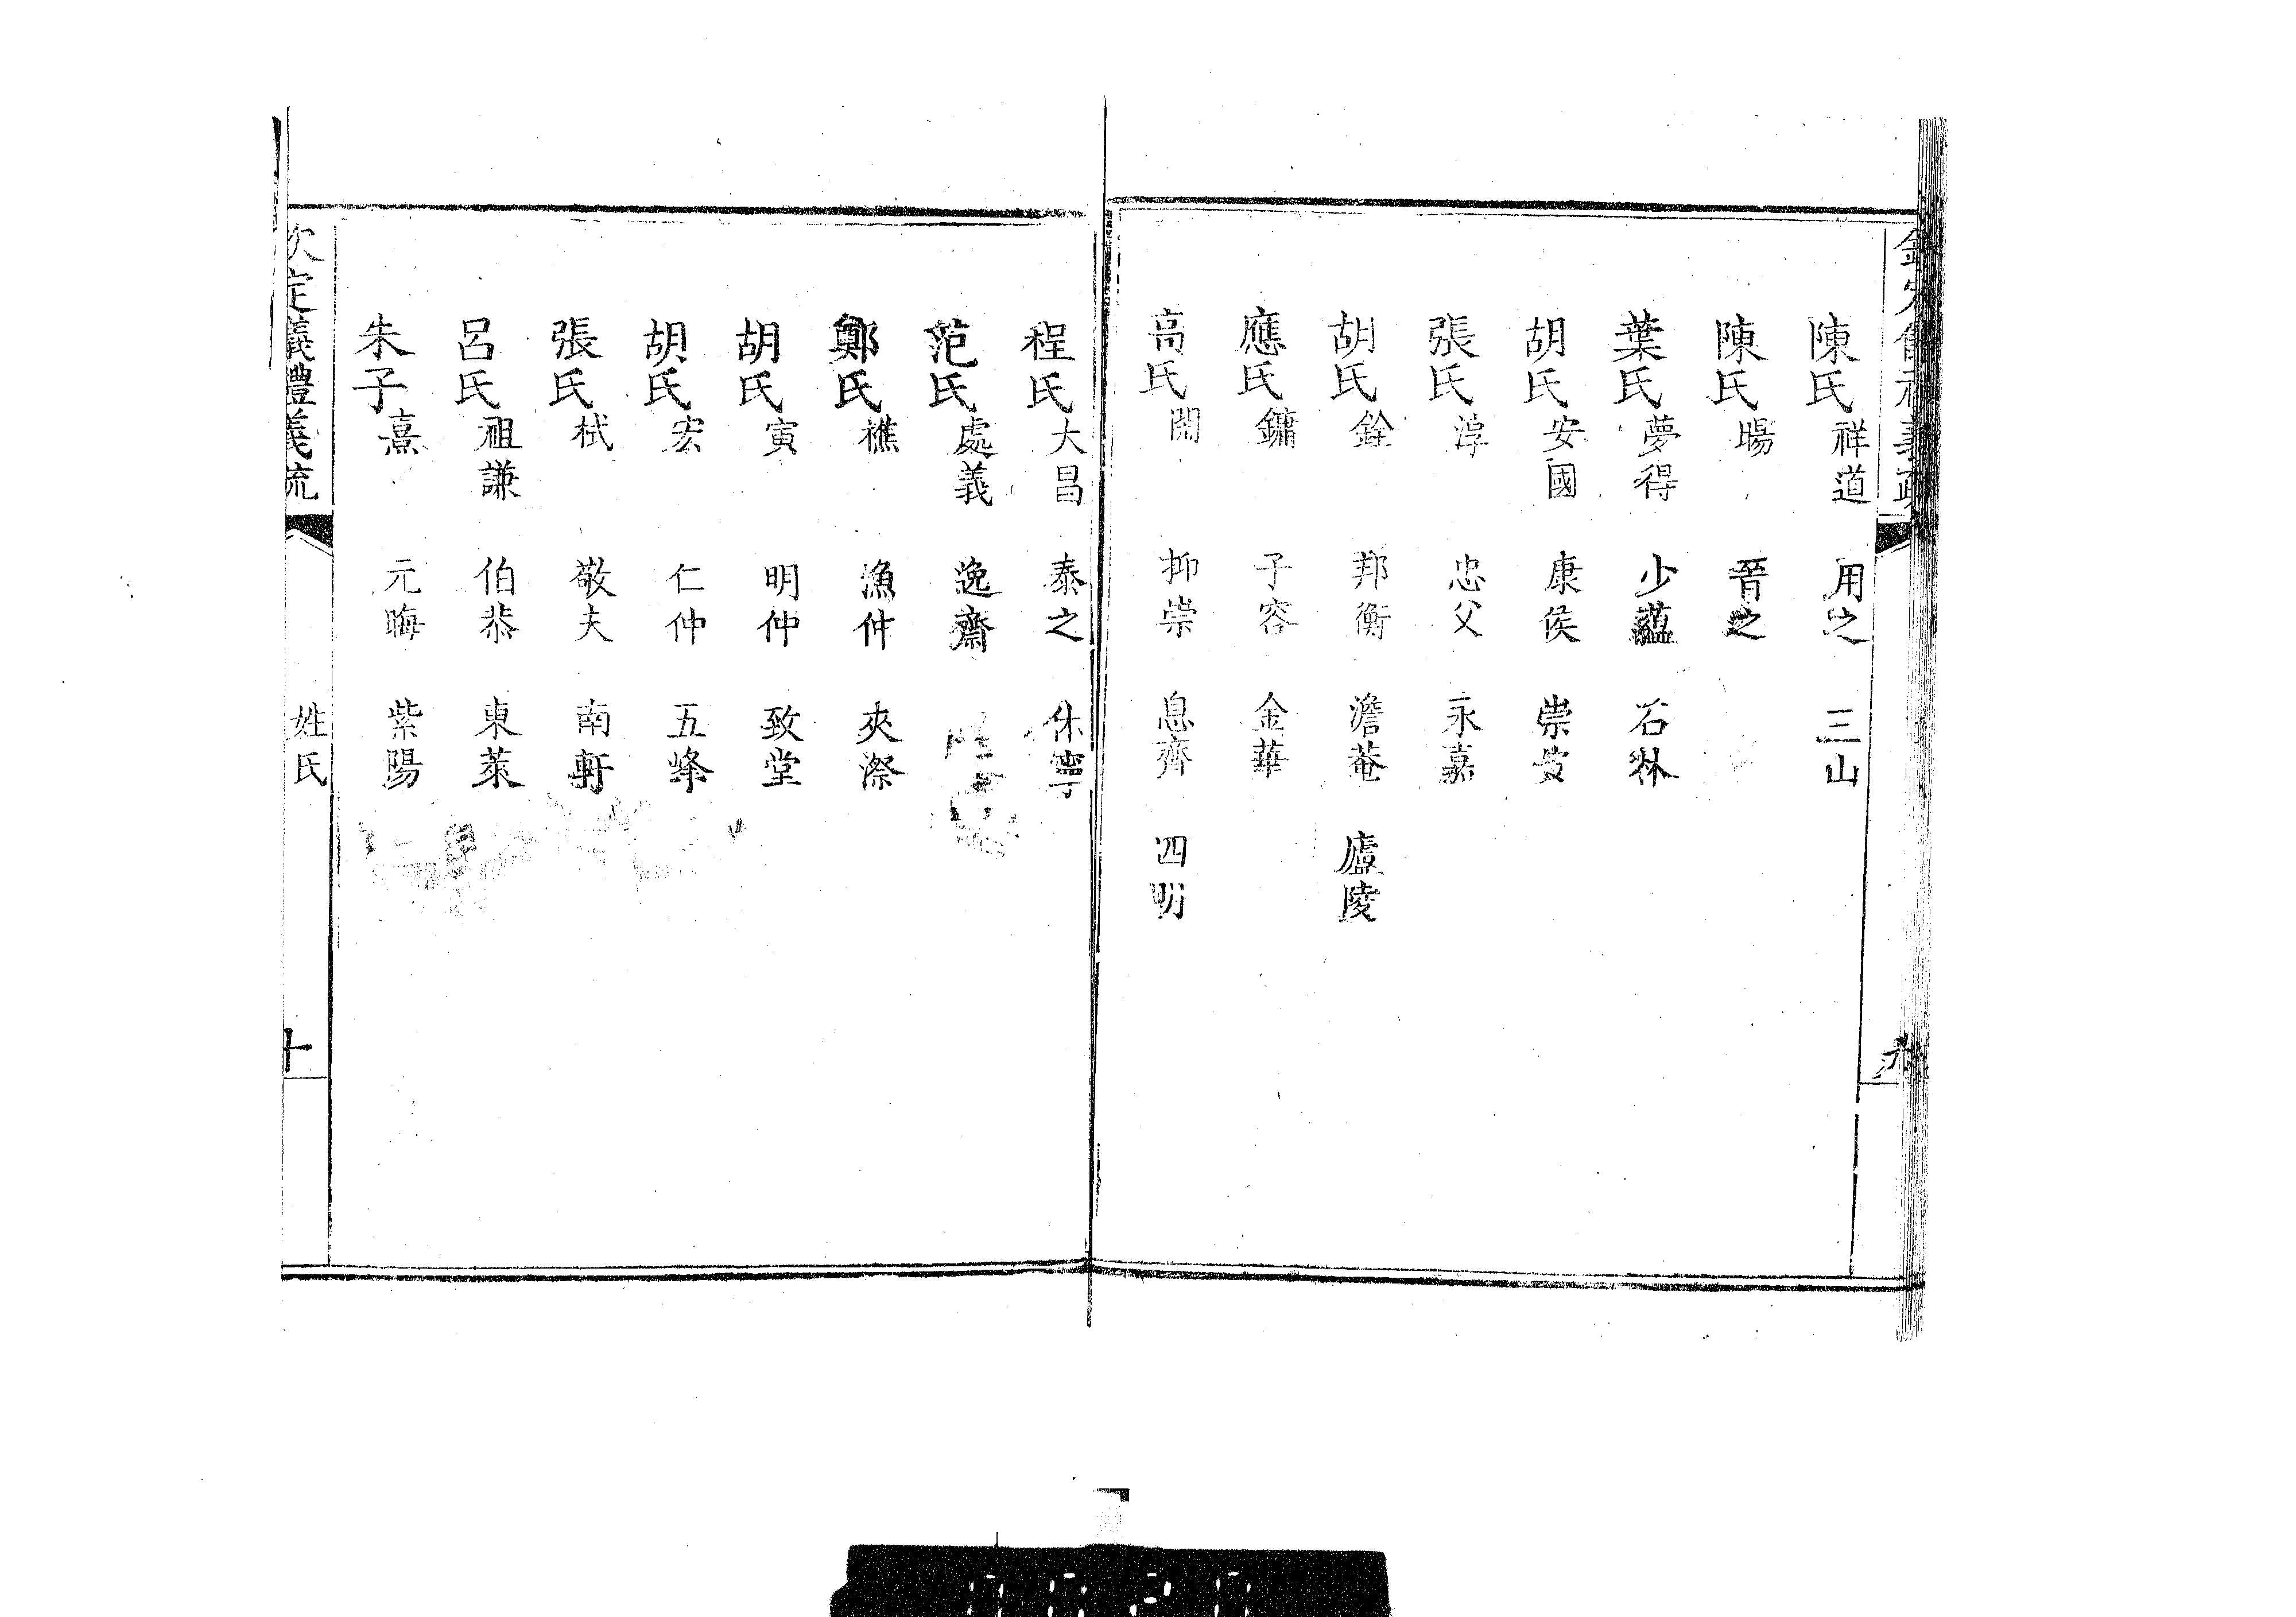 陳氏祥道　用之　三山
陳氏暘　晉之
葉氏夢得　少蘊　石林
胡氏安國　康侯　崇安
張氏淳　忠父　永嘉
胡氏銓　邦衡　澹菴　廬陵
應氏鏞　子容　金華
高氏閌　抑崇　息齊　四明
程氏大昌　泰之　休寧
范氏處義　逸齋
鄭氏樵　漁仲　夾漈
胡氏寅　明仲　致堂
胡氏宏　仁仲　五峰
張氏栻　敬夫　南軒
呂氏祖謙　伯恭　東萊
朱子熹　元晦　紫陽
欽定儀禮義疏　姓氏　十